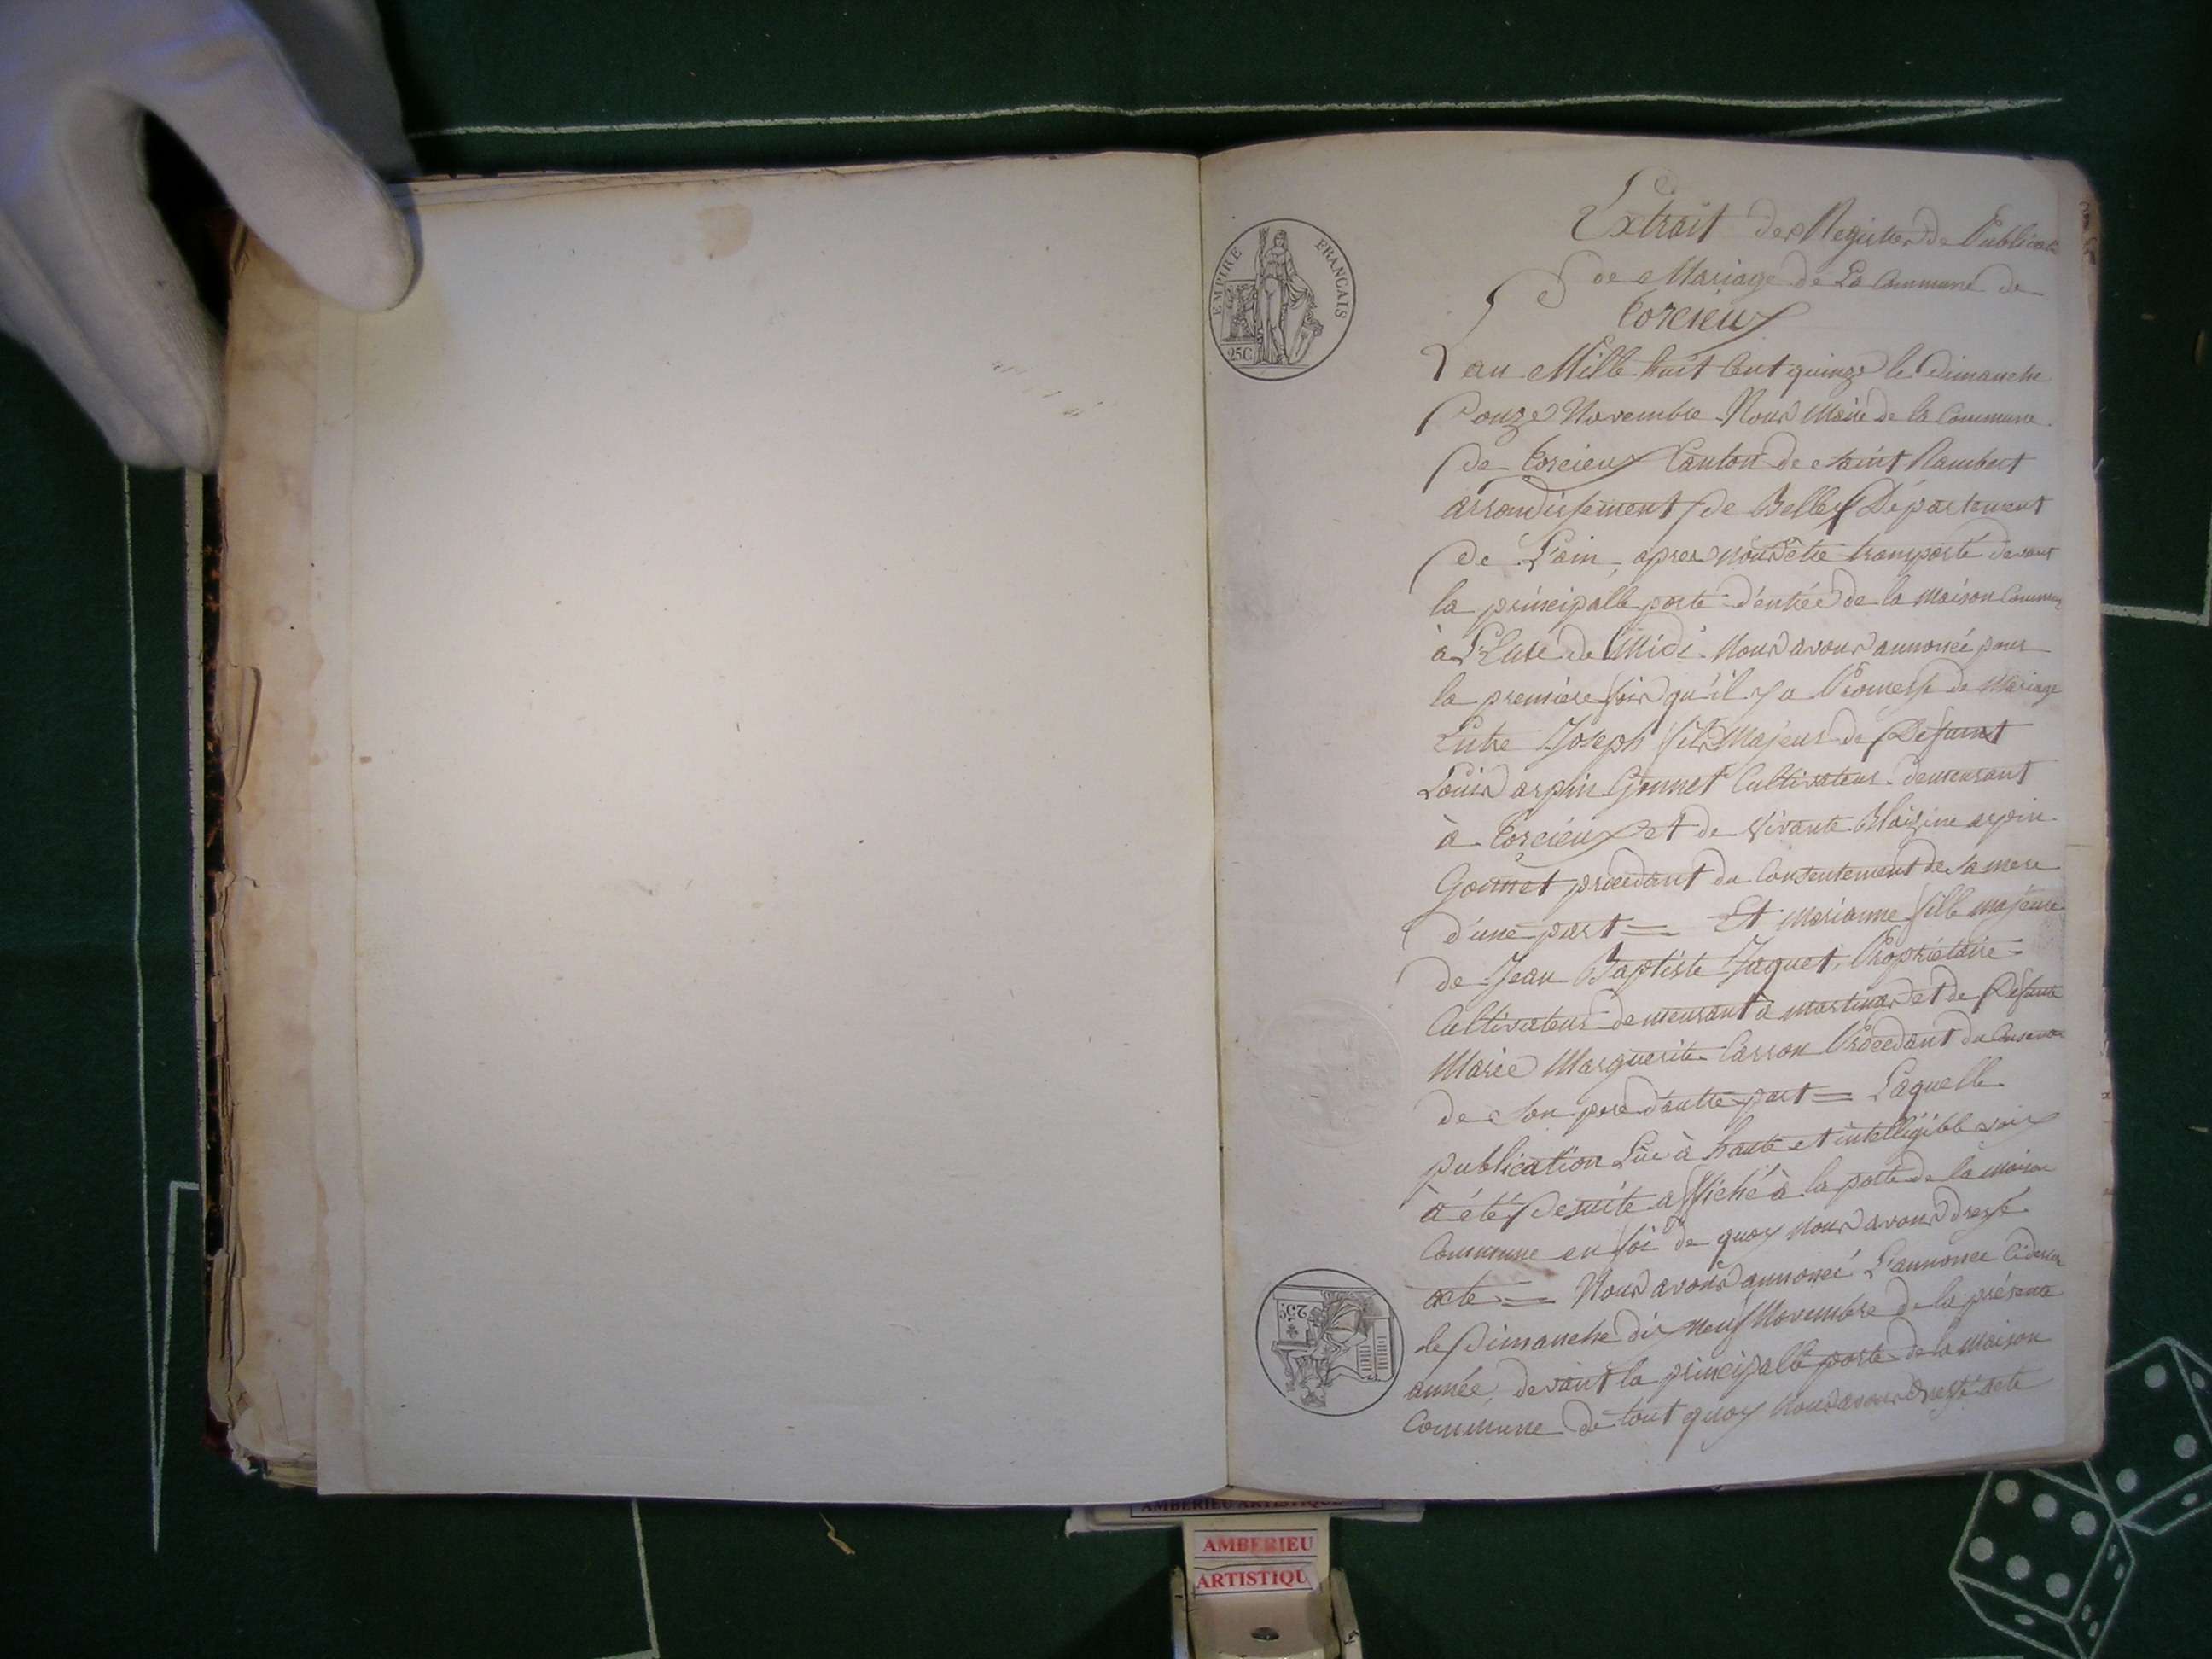 EMPIRE FRANÇAIS
25C
Extrait des Registres de Publicat
de Mariage de La Commune de
Torcieux
L'an Mille huit Cent quinze le Dimanche
Douze Novembre Nous Maire de la Commune
de Torcieux Canton de Saint Rambert
arrondissement de Belley Département
de L'ain, apres nous être transporté devant
la principalle porte d'entrée de la Maison Commune
à L'heure de Midi Nous avons annoncé pour
la premiere fois qu'il y a Promesse de Mariage
Entre Joseph fils Majeur de Defunt
Louis arpin Gonnet Cultivateur demeurant
à Torcieux et de vivante Blaizine arpin
Gonnet procedant du Consentement de sa mere
d'une part = Et Marianne fille majeure
de Jean Baptiste Jaquet, Propriétaire
Cultivateur demeurant à martinaz et de Defunte
Marie Marguerite Carron Procedant du
de son pere d'autre part = Laquelle
publication Lue à haute et intelligible voix
à été Desuite affiché à la porte de la maison
Commune en foi de quoy Nous avons dressé
acte = Nous avons annoncé L'annonce Cidessus
le Dimanche dix neuf Novembre de la présente
année, devant la principalle porte de la Maison
Commune de tout quoy Nous avons Dressé acte
25C
AMBERIEU ARTISTIQUE
AMBERIEU
ARTISTIQU